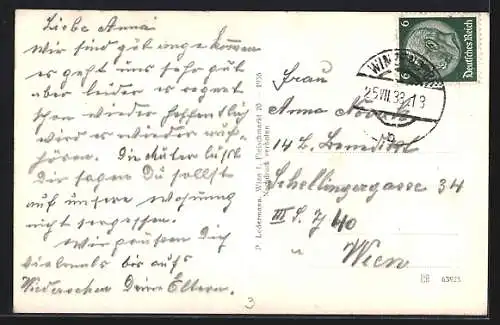 Liebe Anna!
Wir sind gut angekommen
es geht uns sehr gut
aber leider es regnet
schon wieder hoffentlich
wird es wieder auf-
hören. Die Mutter lässt
Dir sagen Du sollst
auf unsere Wohnung
nicht vergessen.
Wir grüssen Dich
vielemals bis aufs
Wiedersehen Deine Eltern.
P. Ledermann, Wien I., Fleischmarkt 20 1936
Nachdruck verboten
6
Deutsches Reich
25.VII.39.
Frau
Anna Novak
Schellingergasse 34
III S. J 40
Wien
63925
3